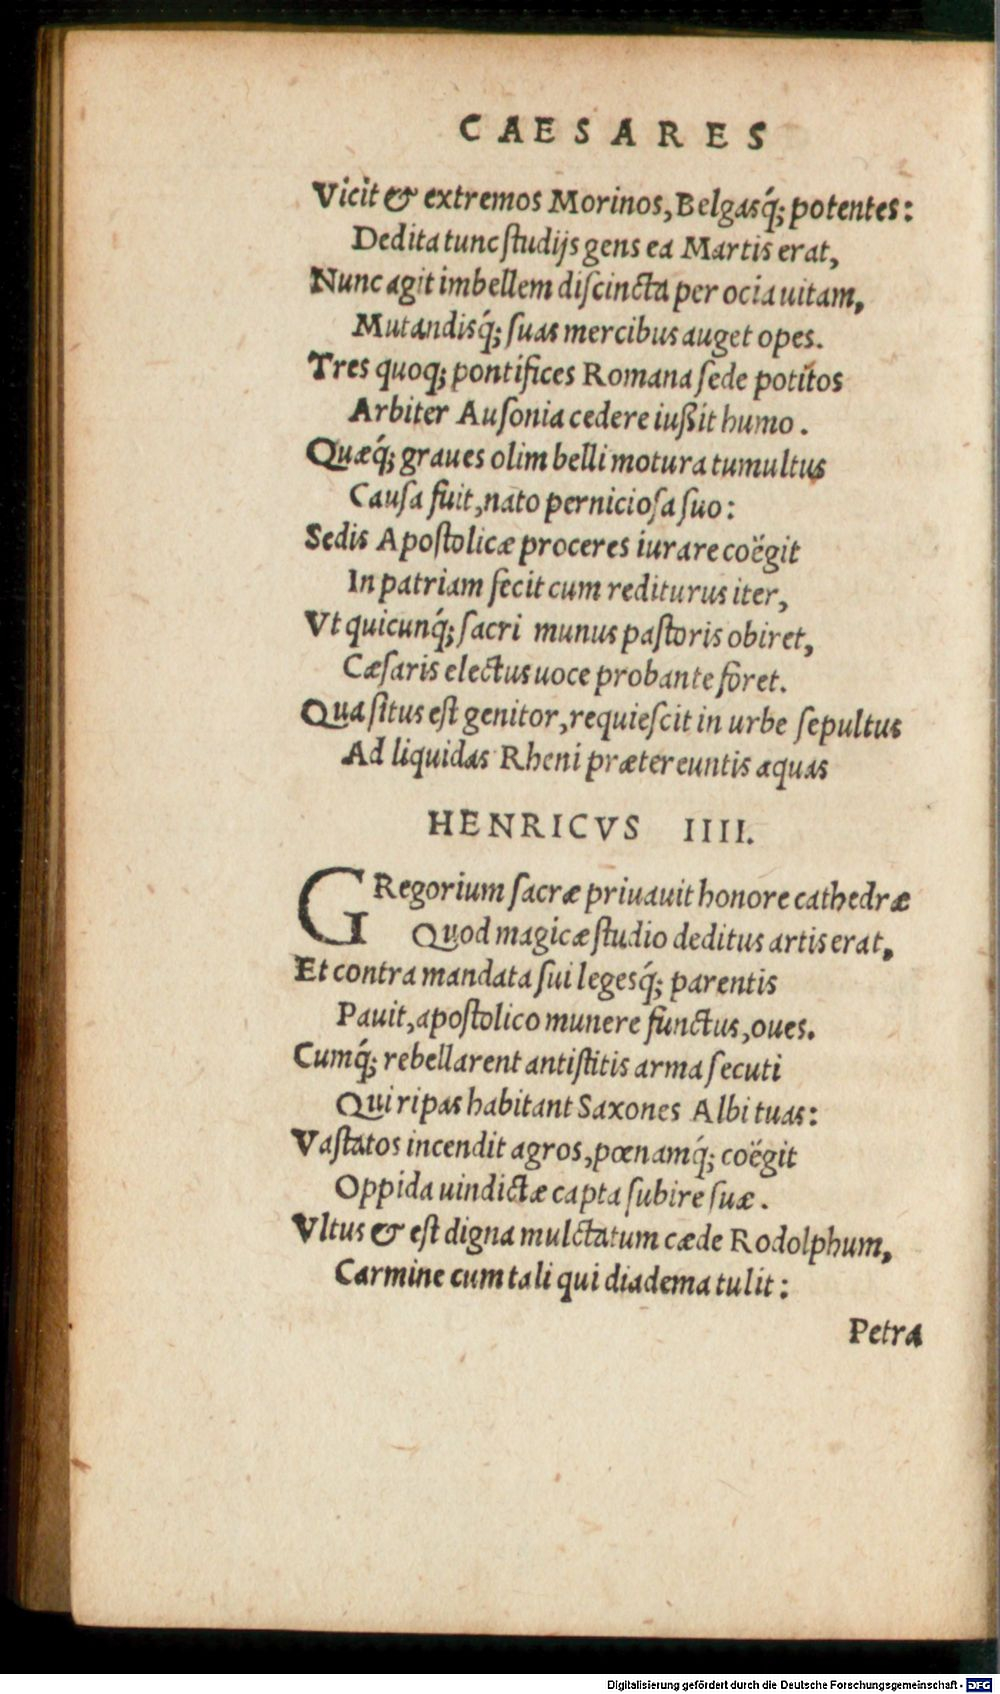 CAESARES
Vicit & extremos Morinos, Belgasq́; potentes:
Dedita tunc ſtudijs gens ea Martis erat,
Nunc agit imbellem diſcincta per ocia uitam,
Mutandisq́; ſuas mercibus auget opes.
Tres quoq; pontifices Romana ſede potitos
Arbiter Auſonia cedere iußit humo.
Quæq́; graues olim belli motura tumultus
Cauſa fuit, nato pernicioſa ſuo:
Sedis Apoſtolicæ proceres iurare coëgit
In patriam fecit cum rediturus iter,
Vt quicunq́; ſacri munus paſtoris obiret,
Cæſaris electus uoce probante foret.
Qua ſitus eſt genitor, requieſcit in urbe ſepultus
Ad liquidas Rheni prætereuntis aquas
HENRICVS IIII.
GRegorium ſacræ priuauit honore cathedræ
Quod magicæ ſtudio deditus artis erat,
Et contra mandata ſui legesq́; parentis
Pauit, apoſtolico munere functus, oues.
Cumq́; rebellarent antiſtitis arma ſecuti
Qui ripas habitant Saxones Albi tuas:
Vaſtatos incendit agros, pœnamq́; coëgit
Oppida uindictæ capta ſubire ſuæ.
Vltus & eſt digna mulctatum cæde Rodolphum,
Carmine cum tali qui diadema tulit:
Petra
Digitalisierung gefördert durch die Deutsche Forschungsgemeinschaft - DFG